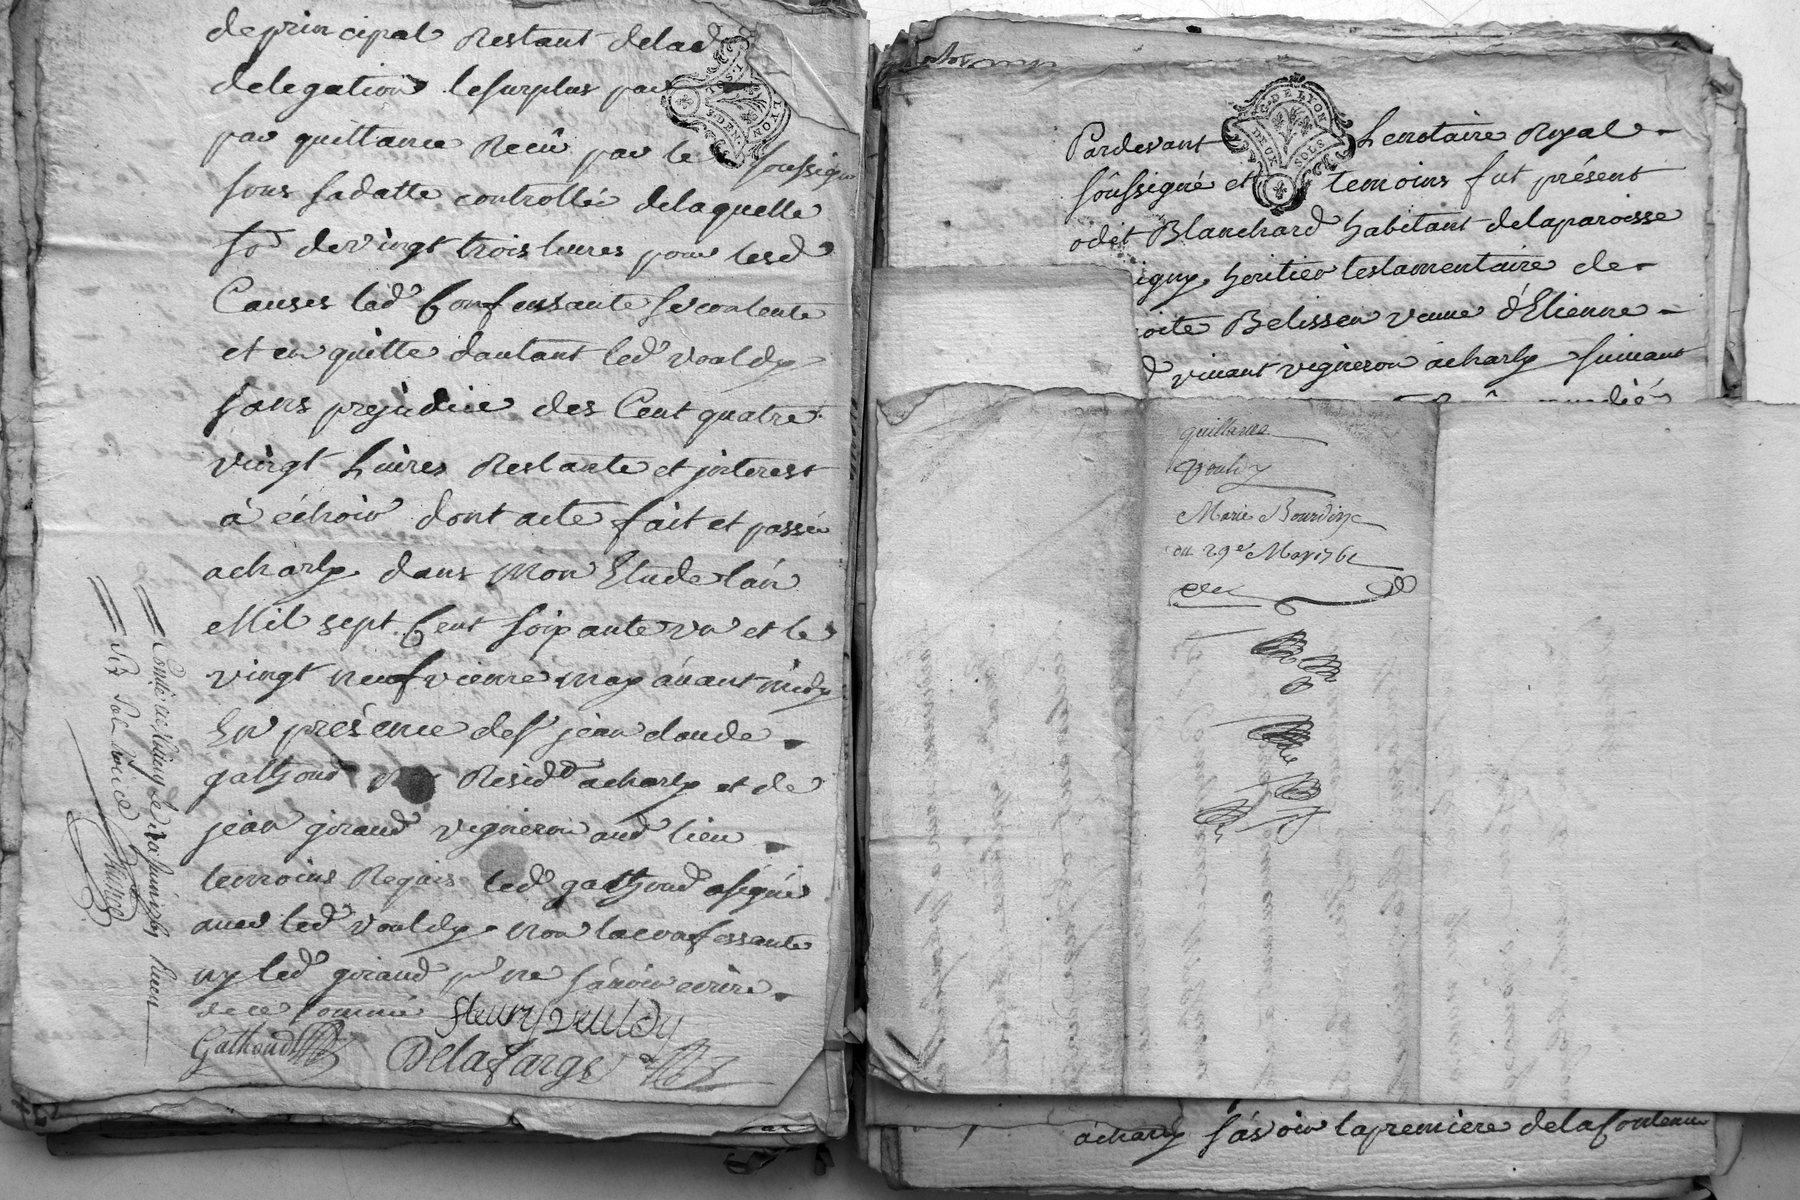 de principal Restant delad
delegation lesurplus par
par quittance Recû par le soussign
sous sadatte controllée delaquelle
de vingt trois livres pour lesd
Causes lad Confessante se contente
et en quitte dautant led vouldy
sans prejudice des Cent quatre
vingt Livres Restante et jnterest
à échoir dont acte fait et passé
acharly dans mon Etude lán
Mil sept Cent soixante un et le
vingt neufvieme may ávant midy
En présence des jean claude
gathoud Resid acharly et de
jean giraud vigneron aud lieu
temoins Requis led gathoud asigné
avec led vouldy non laconfessante
ny led giraud pr ne sávoir écrire
de ce sommé
fleury vouldy
Gathoud
Delafarge
Six sols
G. DE LYON
DEUX SOLS
Pardevant Le notaire Royal
soûssigné et temoins fut présent
odet Blanchard habitant delaparoisse
igny heritier testamentaire de
Belissen veuve d'Etienne
vivant vigneron acharly suivant
quittance
Vouldy
Marie Bourdin
du 29e May 1761
acharly sávoir lapremiere delafontenne